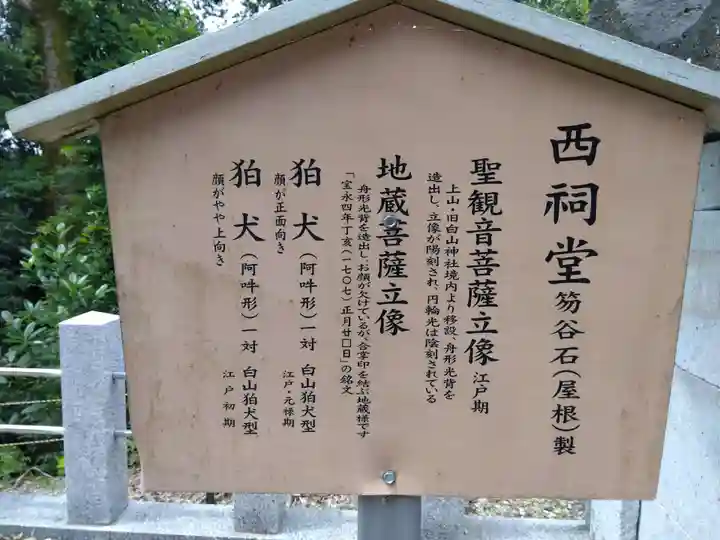 西祠堂 笏谷石(屋根)製
聖観音菩薩立像 江戸期
上山・旧白山神社境内より移設、舟形光背を
造出し、立像が陽刻され、円輪光は陰刻されている
地蔵菩薩立像
舟形光背を造出し、お顔が欠けているが、合掌印を結ぶ地蔵様です
「宝永四年丁亥(一七〇七)正月廿口日」の銘文
狛犬(阿吽形)一対 白山狛犬型
顔が正面向き 江戸・元禄期
狛犬(阿吽形)一対 白山狛犬型
顔がやや上向き 江戸初期